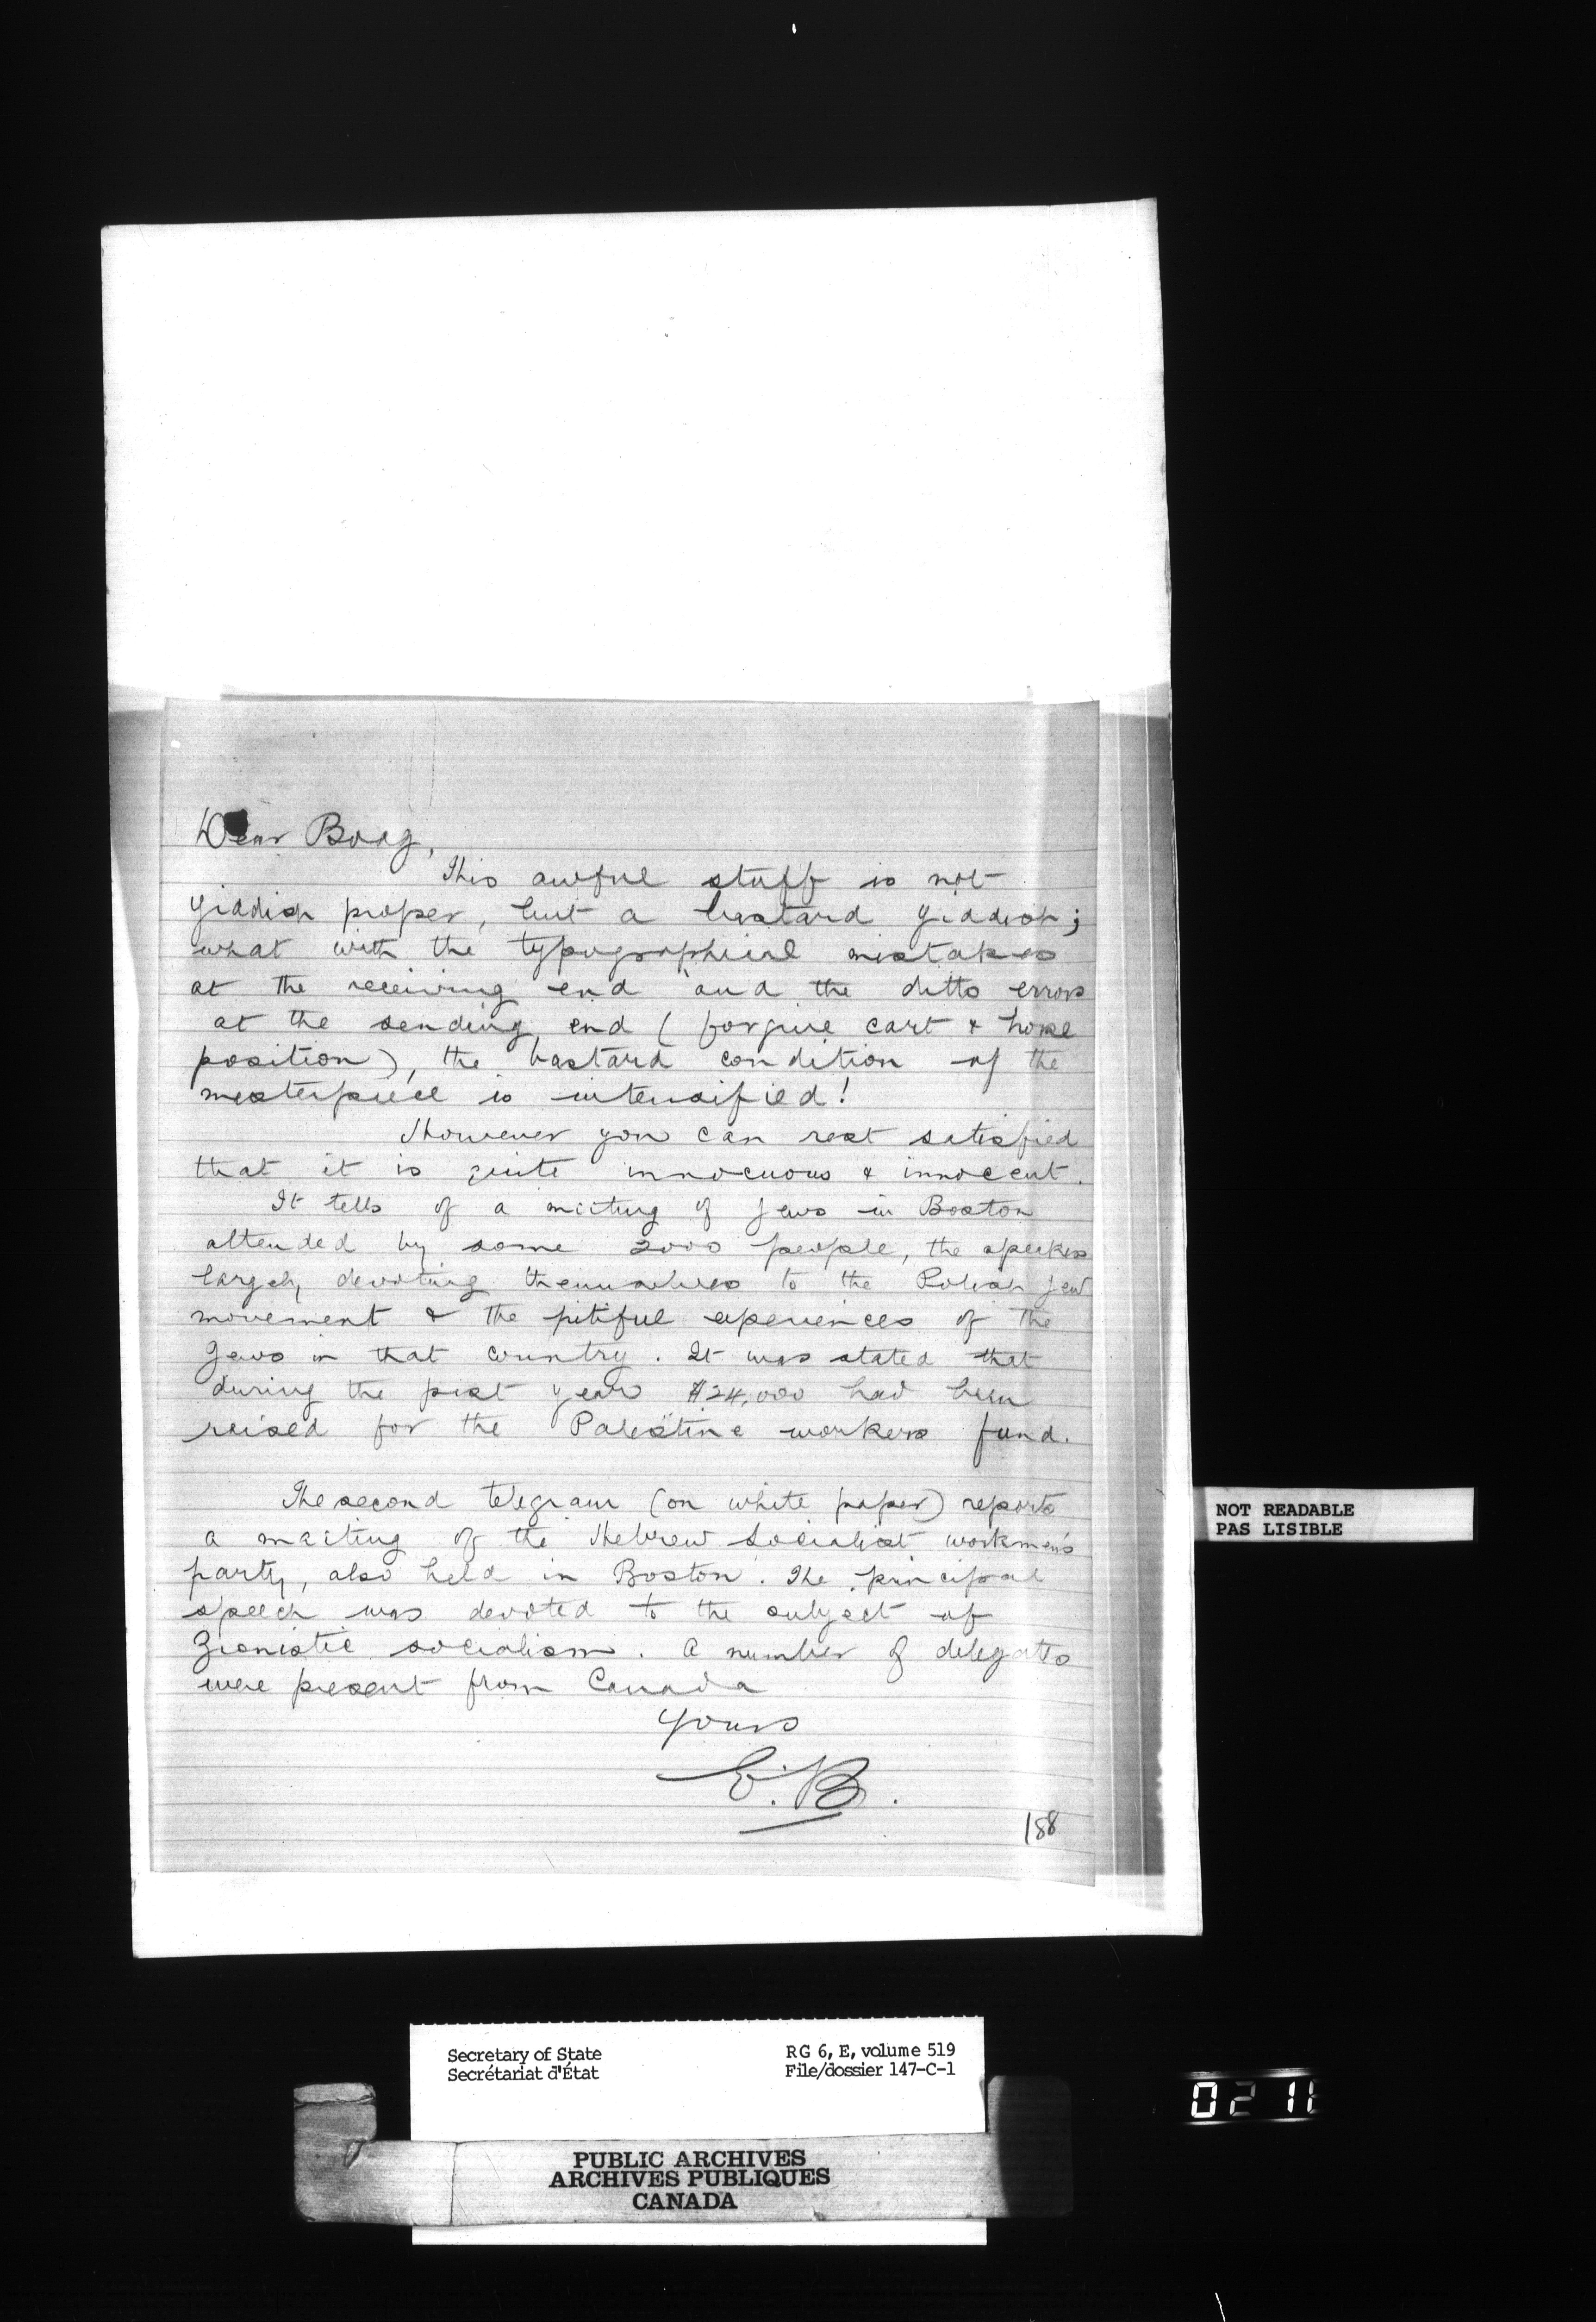 Dear Boag,
This awful stuff is not
Yiddish proper, but a bastard Yiddish;
what with the typographical mistakes
at the receiving end and the ditto errors
at the sending end (forgive cart & horse
position), the bastard condition of the
masterpiece is intensified!
However you can rest satisfied
that it is quite innocuous & innocent.
It tells of a meeting of Jews in Boston
attended by some 2000 people, the speakers
largely devoting themselves to the Polish Jew
movement & the pitiful experiences of the
Jews in that country. It was stated that
during the past year $24,000 had been
raised for the Palestine workers fund.
The second telegram (on white paper) reports
a meeting of the Hebrew Socialist workmen's
party, also held in Boston. The principal
speech was devoted to the subject of
Zionistic socialism. A number of delegates
were present from Canada
Yours
E.B.
188
NOT READABLE
PAS LISIBLE
Secretary of State RG 6, E, volume 519
Secrétariat d'État File/dossier 147-C-1
PUBLIC ARCHIVES
ARCHIVES PUBLIQUES
CANADA